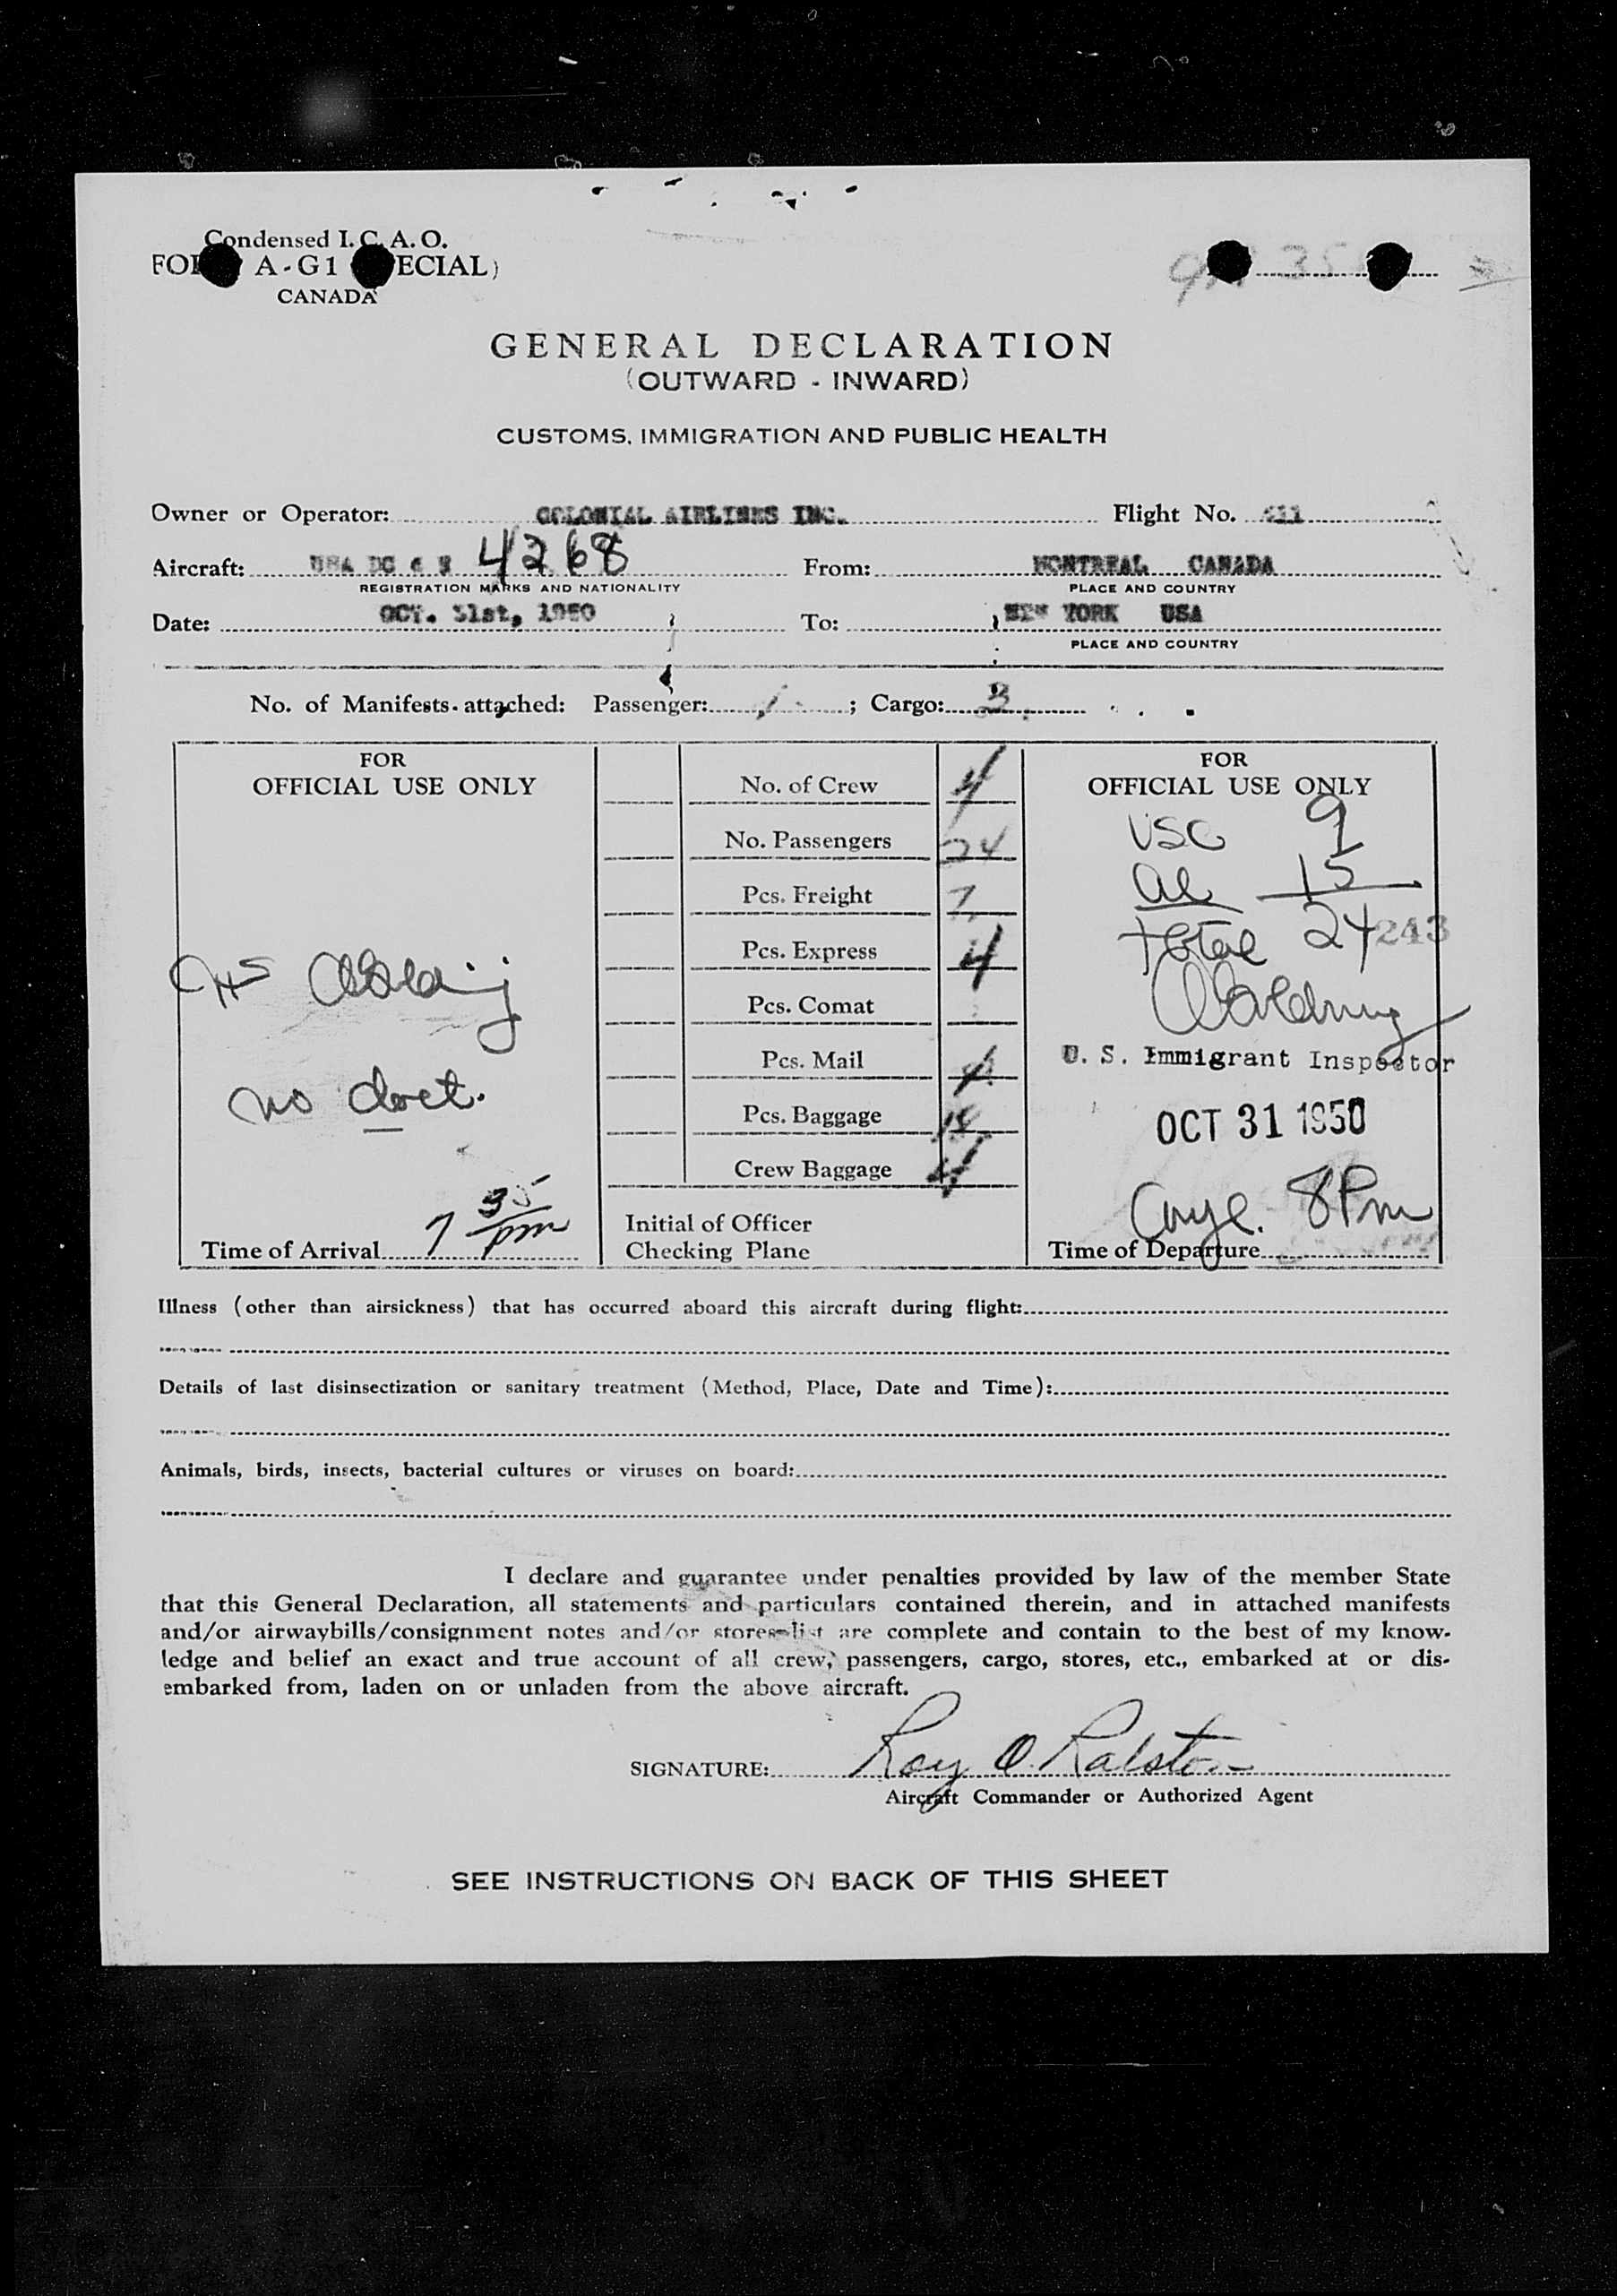 Condensed I. C. A. O.
A-G1
CANADA
GENERAL DECLARATION
(OUTWARD - INWARD)
CUSTOMS, IMMIGRATION AND PUBLIC HEALTH
Owner or Operator: COLONIAL AIRLINES INC. Flight No.
Aircraft: USA DC 4 N 4268 From: MONTREAL CANADA
REGISTRATION MARKS AND NATIONALITY PLACE AND COUNTRY
Date: OCT. 31st, 1950 To: NEW YORK USA
PLACE AND COUNTRY
No. of Manifests attached: Passenger: 1 ; Cargo: 3
FOR
OFFICIAL USE ONLY
no doct.
Time of Arrival 7 35 pm
No. of Crew 4
No. Passengers 24
Pcs. Freight 7
Pcs. Express 4
Pcs. Comat
Pcs. Mail
Pcs. Baggage
Crew Baggage 4
Initial of Officer
Checking Plane
FOR
OFFICIAL USE ONLY
USC 9
al 15
total 24 243
U. S. Immigrant Inspector
OCT 31 1950
8 Pm
Time of Departure
Illness (other than airsickness) that has occurred aboard this aircraft during flight:
Details of last disinsectization or sanitary treatment (Method, Place, Date and Time):
Animals, birds, insects, bacterial cultures or viruses on board:
I declare and guarantee under penalties provided by law of the member State
that this General Declaration, all statements and particulars contained therein, and in attached manifests
and/or airwaybills/consignment notes and/or stores-list are complete and contain to the best of my know-
ledge and belief an exact and true account of all crew, passengers, cargo, stores, etc., embarked at or dis-
embarked from, laden on or unladen from the above aircraft.
SIGNATURE: Roy O. Ralston
Aircraft Commander or Authorized Agent
SEE INSTRUCTIONS ON BACK OF THIS SHEET